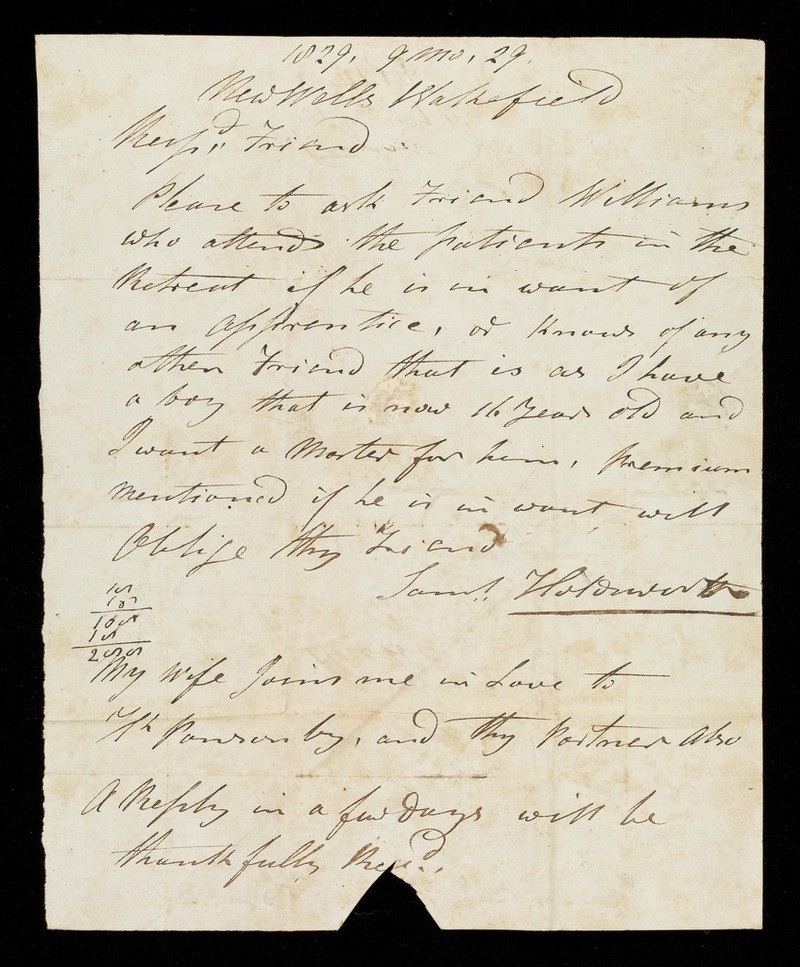 1829. 9 mo, 29.
New Wells Wakefield
Resp.d Friend
Please to ask Friend Williams
who attends the patients in the
Retreat if he is in want of
an Apprentice, or knows of any
other Friend that is as I have
a boy that is now 16 Years old and
I want a Master for him, premium
mentioned if he is in want will
Oblige thy Friend
Saml. Holdsworth
15
15
165
15
255
My Wife Joins me in Love to
Ponsonby, and thy Partner Also
A Reply in a few Days will be
thankfully Recd.